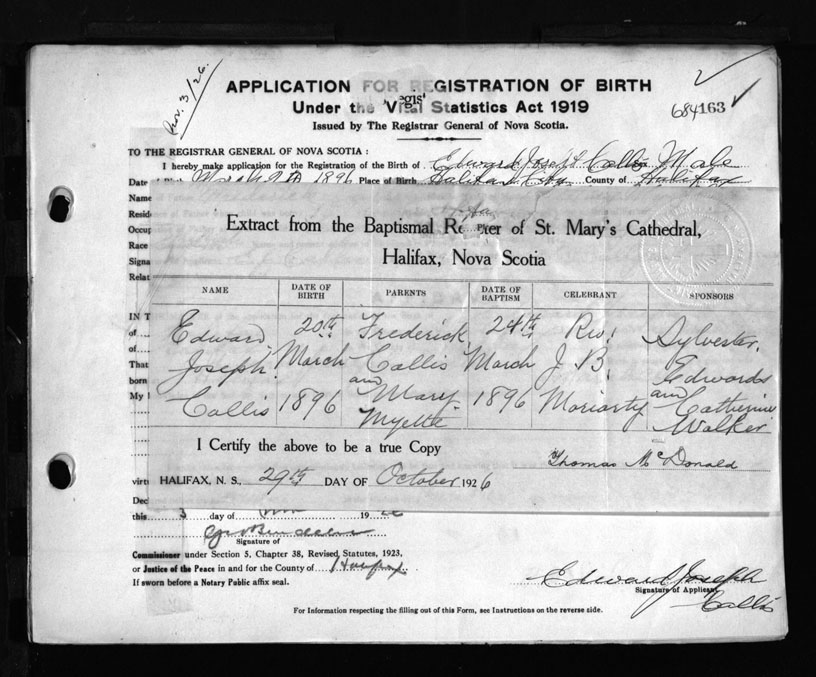 Nov. 3/26.
APPLICATION FOR REGISTRATION OF BIRTH
Under the Vital Statistics Act 1919
Issued by The Registrar General of Nova Scotia.
684163
TO THE REGISTRAR GENERAL OF NOVA SCOTIA :
I hereby make application for the Registration of the Birth of Edward Joseph Callis Male
Date March 20 1896 Place of Birth Halifax City County of Halifax
Name
Resid
Occup
Race
Signa
Relat
Extract from the Baptismal Re er of St. Mary's Cathedral,
Halifax, Nova Scotia
NAME DATE OF BIRTH PARENTS DATE OF BAPTISM CELEBRANT SPONSORS
IN T
Edward 20th Frederick 24th Rev. Sylvester
of
Joseph March Callis March J. B. Edwards
That
born and and
My
Callis 1896 Mary 1896 Moriarty Catherine
Myette Walker
I Certify the above to be a true Copy
Thomas McDonald
virt
HALIFAX, N. S., 29th DAY OF October 1926
Decl
this 3 day of Nov 19 26
Signature of
Commissioner under Section 5, Chapter 38, Revised Statutes, 1923,
or Justice of the Peace in and for the County of Halifax
If sworn before a Notary Public affix seal.
Edward Joseph
Signature of Applicant
Callis
For Information respecting the filling out of this Form, see Instructions on the reverse side.